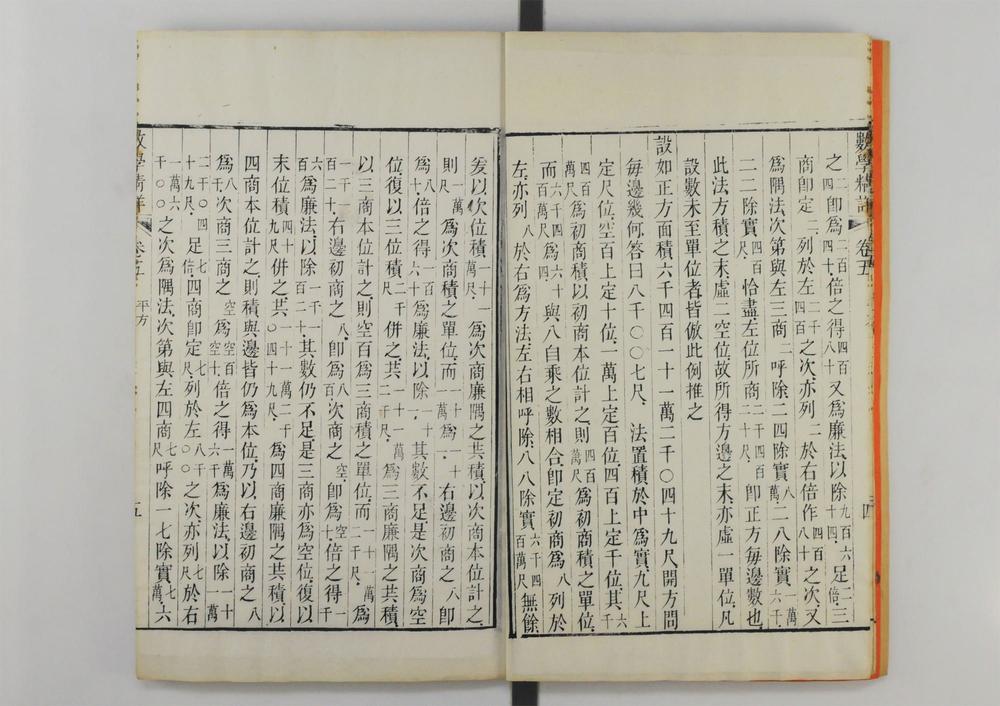 數學精詳 卷五 四
之二四即爲二百四十倍之得四百八十又爲廉法以除九百六十四足二倍三
商即定二列於左二千四百之次亦列二於右倍作四百八十之次又
爲隅法次第與左三商二呼除二四除實八萬二八除實一萬六千
二二除實四百尺恰盡左位所商二千四百二十尺即正方每邊數也
此法方積之末虛二空位故所得方邊之末亦虛一單位凡
設數未至單位者皆倣此例推之
設如正方面積六千四百一十一萬二千〇四十九尺開方問
每邊幾何答曰八千〇〇七尺 法置積於中爲實九尺上
定尺位空百上定十位一萬上定百位四百上定千位其六千
四百萬尺爲初商積以初商本位計之則四百萬尺爲初商積之單位
而六千四百萬爲六十四與八自乘之數相合即定初商爲八列於
左亦列八於右爲方法左右相呼除八八除實六千四百萬尺無餘
爰以次位積一十一萬尺爲次商廉隅之共積以次商本位計之
則一萬尺爲次商積之單位而一十一萬爲一十一右邊初商之八即
爲八十倍之得一百六十爲廉法以除一十一其數不足是次商爲空
位復以三位積二千尺併之共一十一萬二千尺爲三商廉隅之共積
以三商本位計之則空百爲三商積之單位而一十一萬二千尺爲
一千一百二十右邊初商之八即爲八百次商之空即爲空十倍之得一千
六百爲廉法以除一千一百二十其數仍不足是三商亦爲空位復以
末位積四十九尺併之共一十一萬二千〇四十九尺爲四商廉隅之共積以
四商本位計之則積與邊皆仍爲本位乃以右邊初商之八
爲八千次商三商之空爲空百空十倍之得一萬六千爲廉法以除一十一萬
二千〇四十九尺足七倍四商即定七列於左八千〇〇之次亦列七於右
一萬六千〇〇之次爲隅法次第與左四商七尺呼除一七除實七萬六
數學精詳 卷五 平方 五